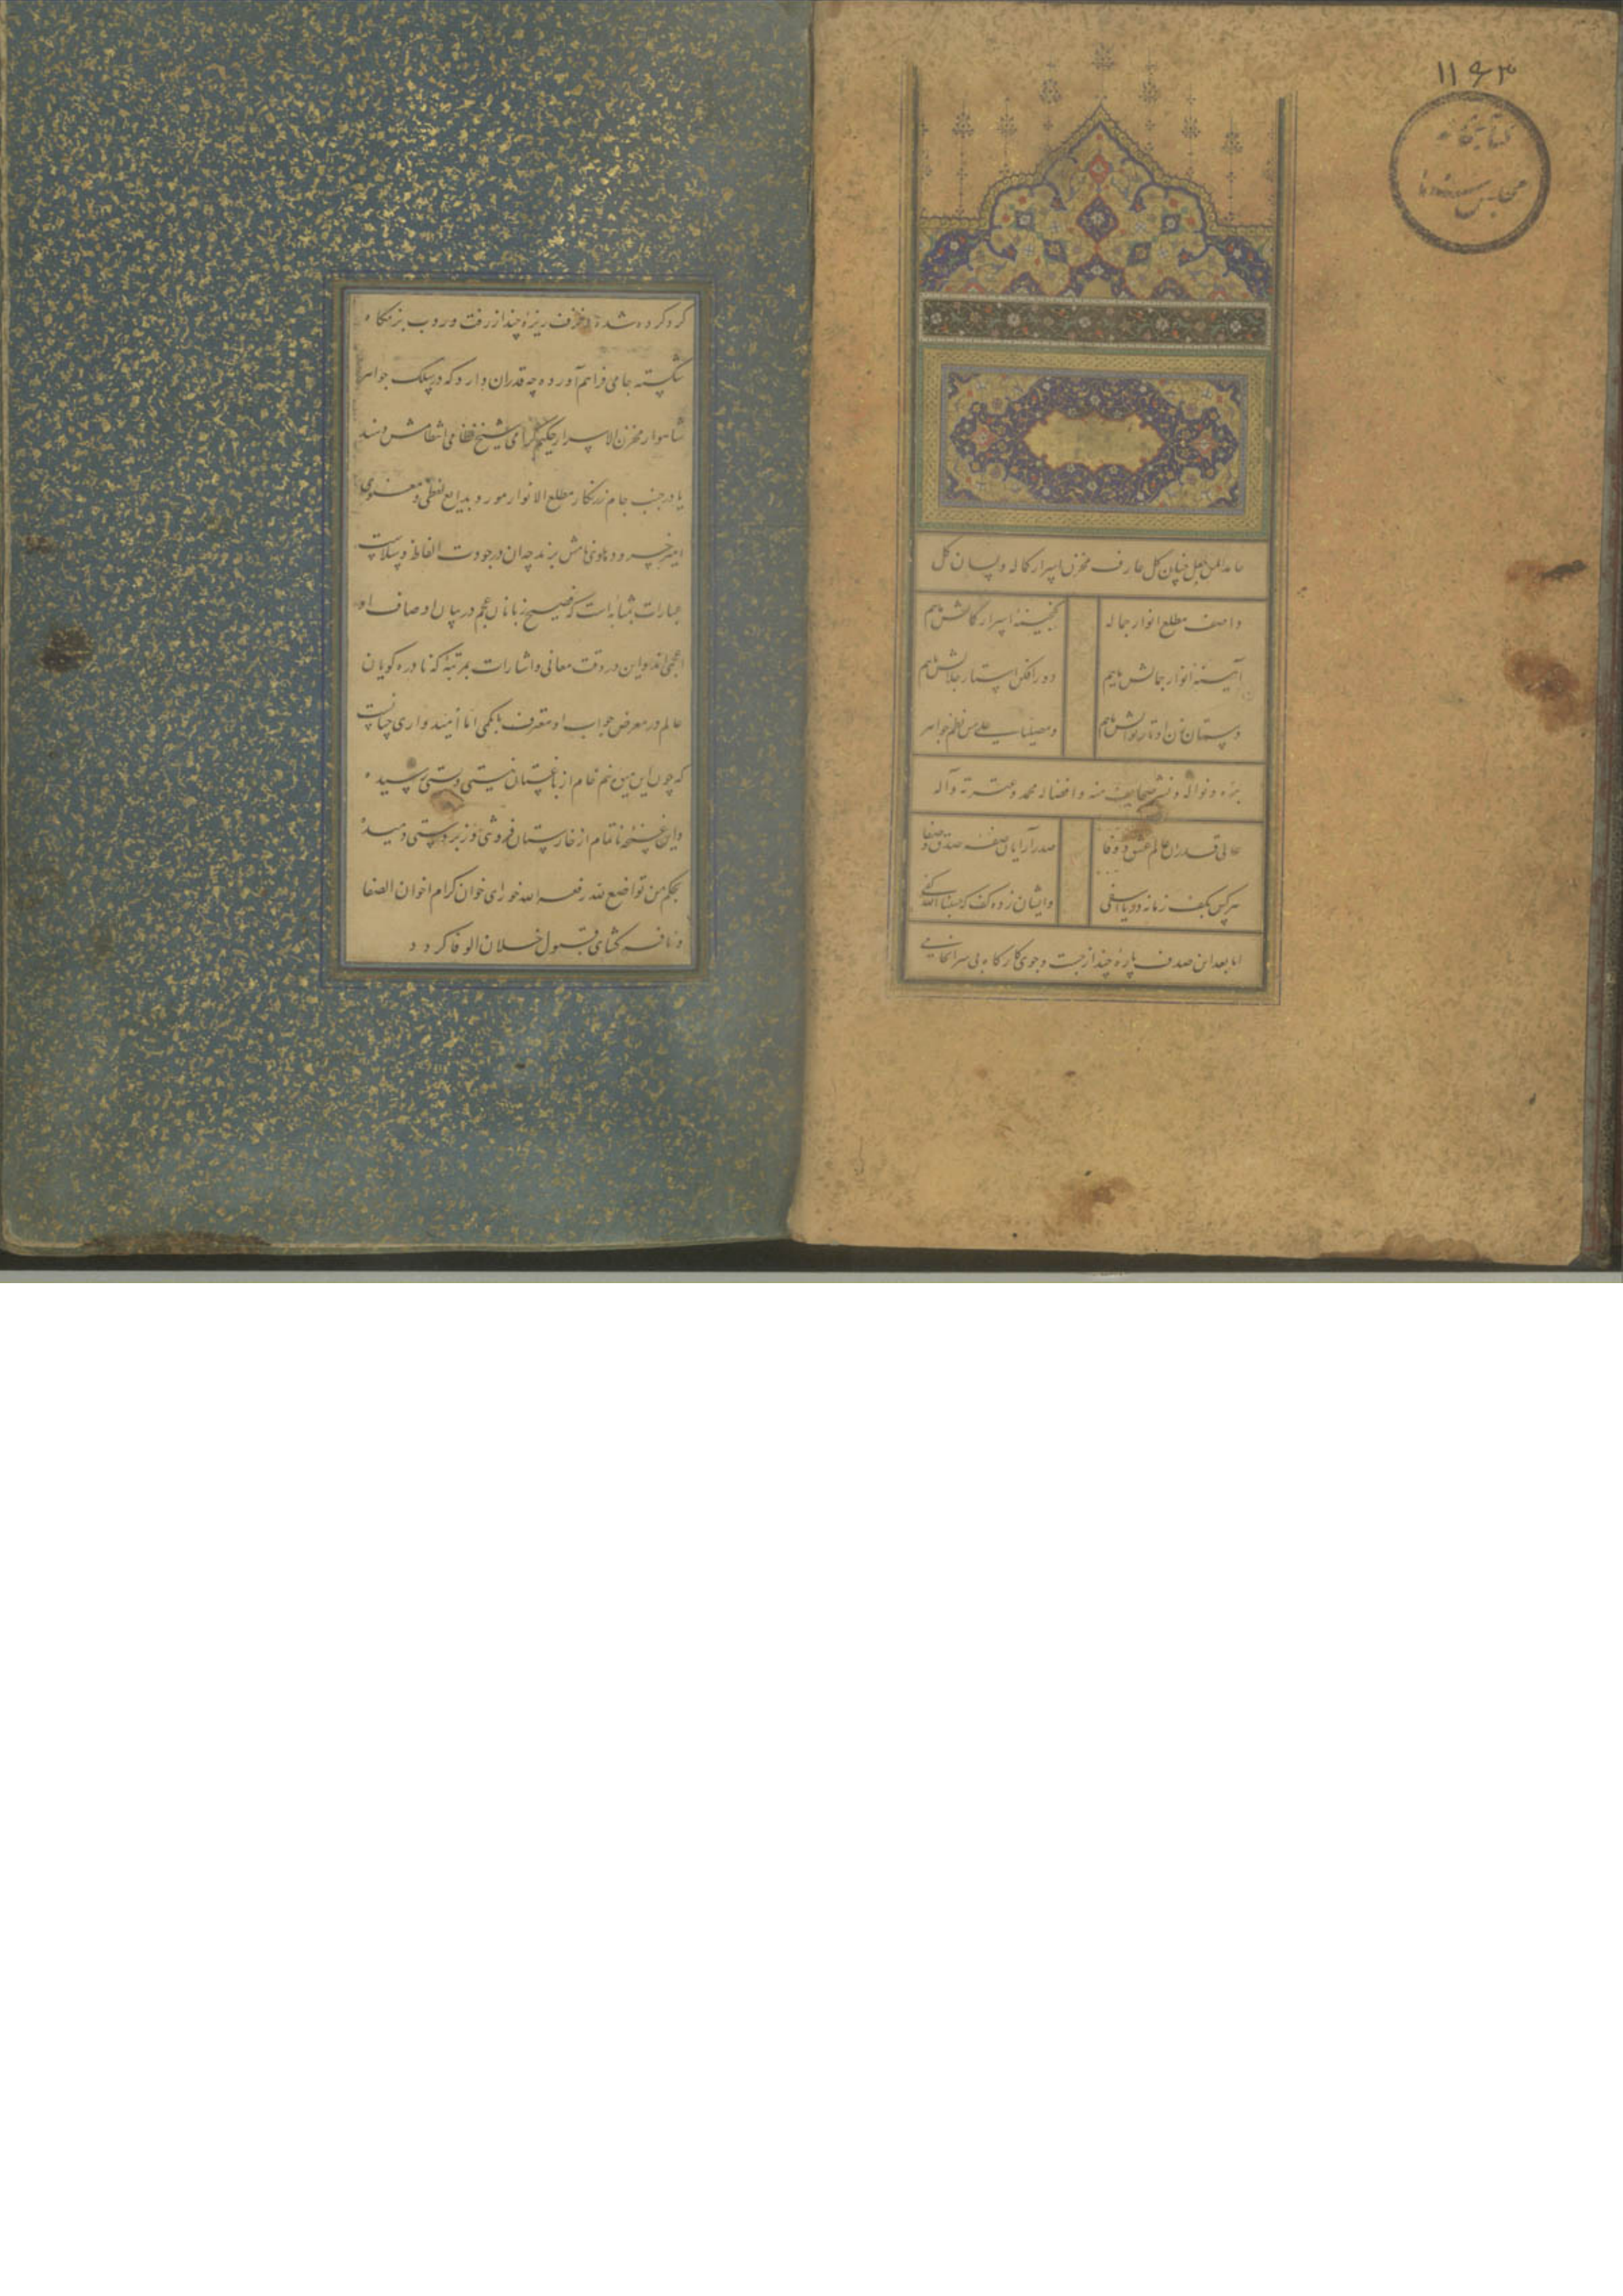 ۱۱۶۳
کتابخانه
مجلس
حامدا لمن جعل جنان کل عارف مخزن اسرار کماله و لسان کل
واصف مطلع انوار جماله
گنجینه اسرار کمالش ماییم
آیینه انوار جمالش ماییم
در افکن استار جلالش ماییم
دستان زن اوتار نوالش ماییم
و مصلیا علی من نظم جواهر
بره و نواله و نشر صحایف منه و افضاله محمد و عترته و آله
عالی قدران عالم عشق و وفا
صدر آرایان صفه صدق و صفا
هر کس بکف زمانه در یا اسفی
وایشان زده کف که حسبنا الله کفی
اما بعد این صدف پاره چند از جست و جوی کارگاه بی سرانجامی
گرد کرده شده و خزف ریزه چند از رفت و روب بزمگاه
شکسته جامی فراهم آورده چه قدر آن دارد که در سلک جواهر
شاهوار مخزن الاسرار حکیم گرامی شیخ نظامی انتظامش دهند
یا در جنب جام زرنگار مطلع الانوار مورد بدایع لفظی و معنوی
امیر خسرو دهلوی نامش برند چه آن در جودت الفاظ و سلاست
عبارات بمثابه است که فصیح زبانان عجم در بیان اوصاف او
اعجمی اند و این در دقت معانی و اشارات بمرتبه که نادره گویان
عالم در معرض جواب او معترف بابکمی اما امیدواری چنانست
که چون این میوه نیم خام از باغستان نیستی و پستی رسیده
و این غنچه ناتمام از خارستان فروشی و زبردستی دمیده
بحکم من تواضع لله رفعه الله خورای خوان کرام اخوان الصفا
و نافه گشای قبول خلان الوفا گردد